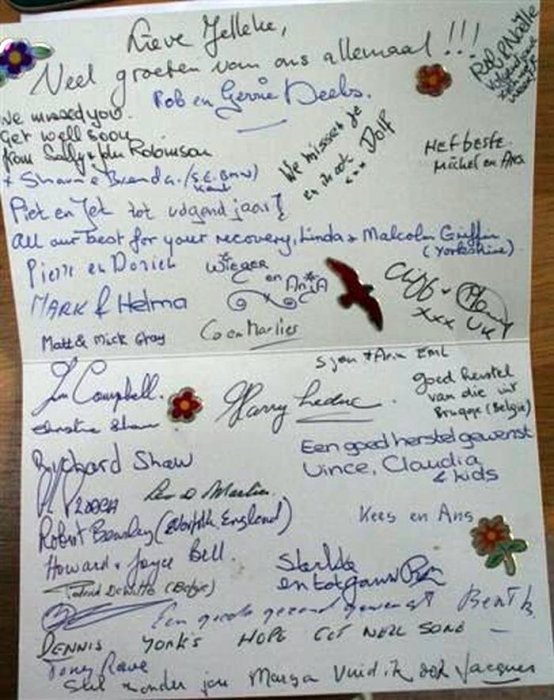 Lieve Jelleke,
Veel groeten van ons allemaal !!!
Rob en Gerrie Deebs.
Rob & Noëlle
We missed you.
Get well soon
from Sally & John Robinson
+ Shaun & Brenda. (S.E. BMW)
Kent
We missen je
en
... Dolf
Het beste
Michel en Ans
Piet en Jet tot volgend jaar!
All our best for your recovery, Linda & Malcolm Griffin
(Yorkshire)
Pierre en Dorien
Wieger
en Anja
Cliff &
xxx UK
MARK & Helma
Matt & Mick Gray
Co en Marlies
Sjon + Ann Eml
Jim Campbell.
Harry Leduc
Goed herstel
van die uit
Brugge (Belgie)
Christine Shaw
Een goed herstel gewenst
Vince, Claudia
& kids
Rychard Shaw
Leo & Martien
Kees en Ans
Robert Bewley (Norfolk England)
Howard & Joyce Bell.
Sterkte
en tot gauw
Patrick DeWitte (Belgie)
Een goede gezondh gewenst Bert k.
DENNIS YORKS HOPE GET WELL SOON
Tony Rave
Stel zonder jou Marga Vind ik ook Jacques